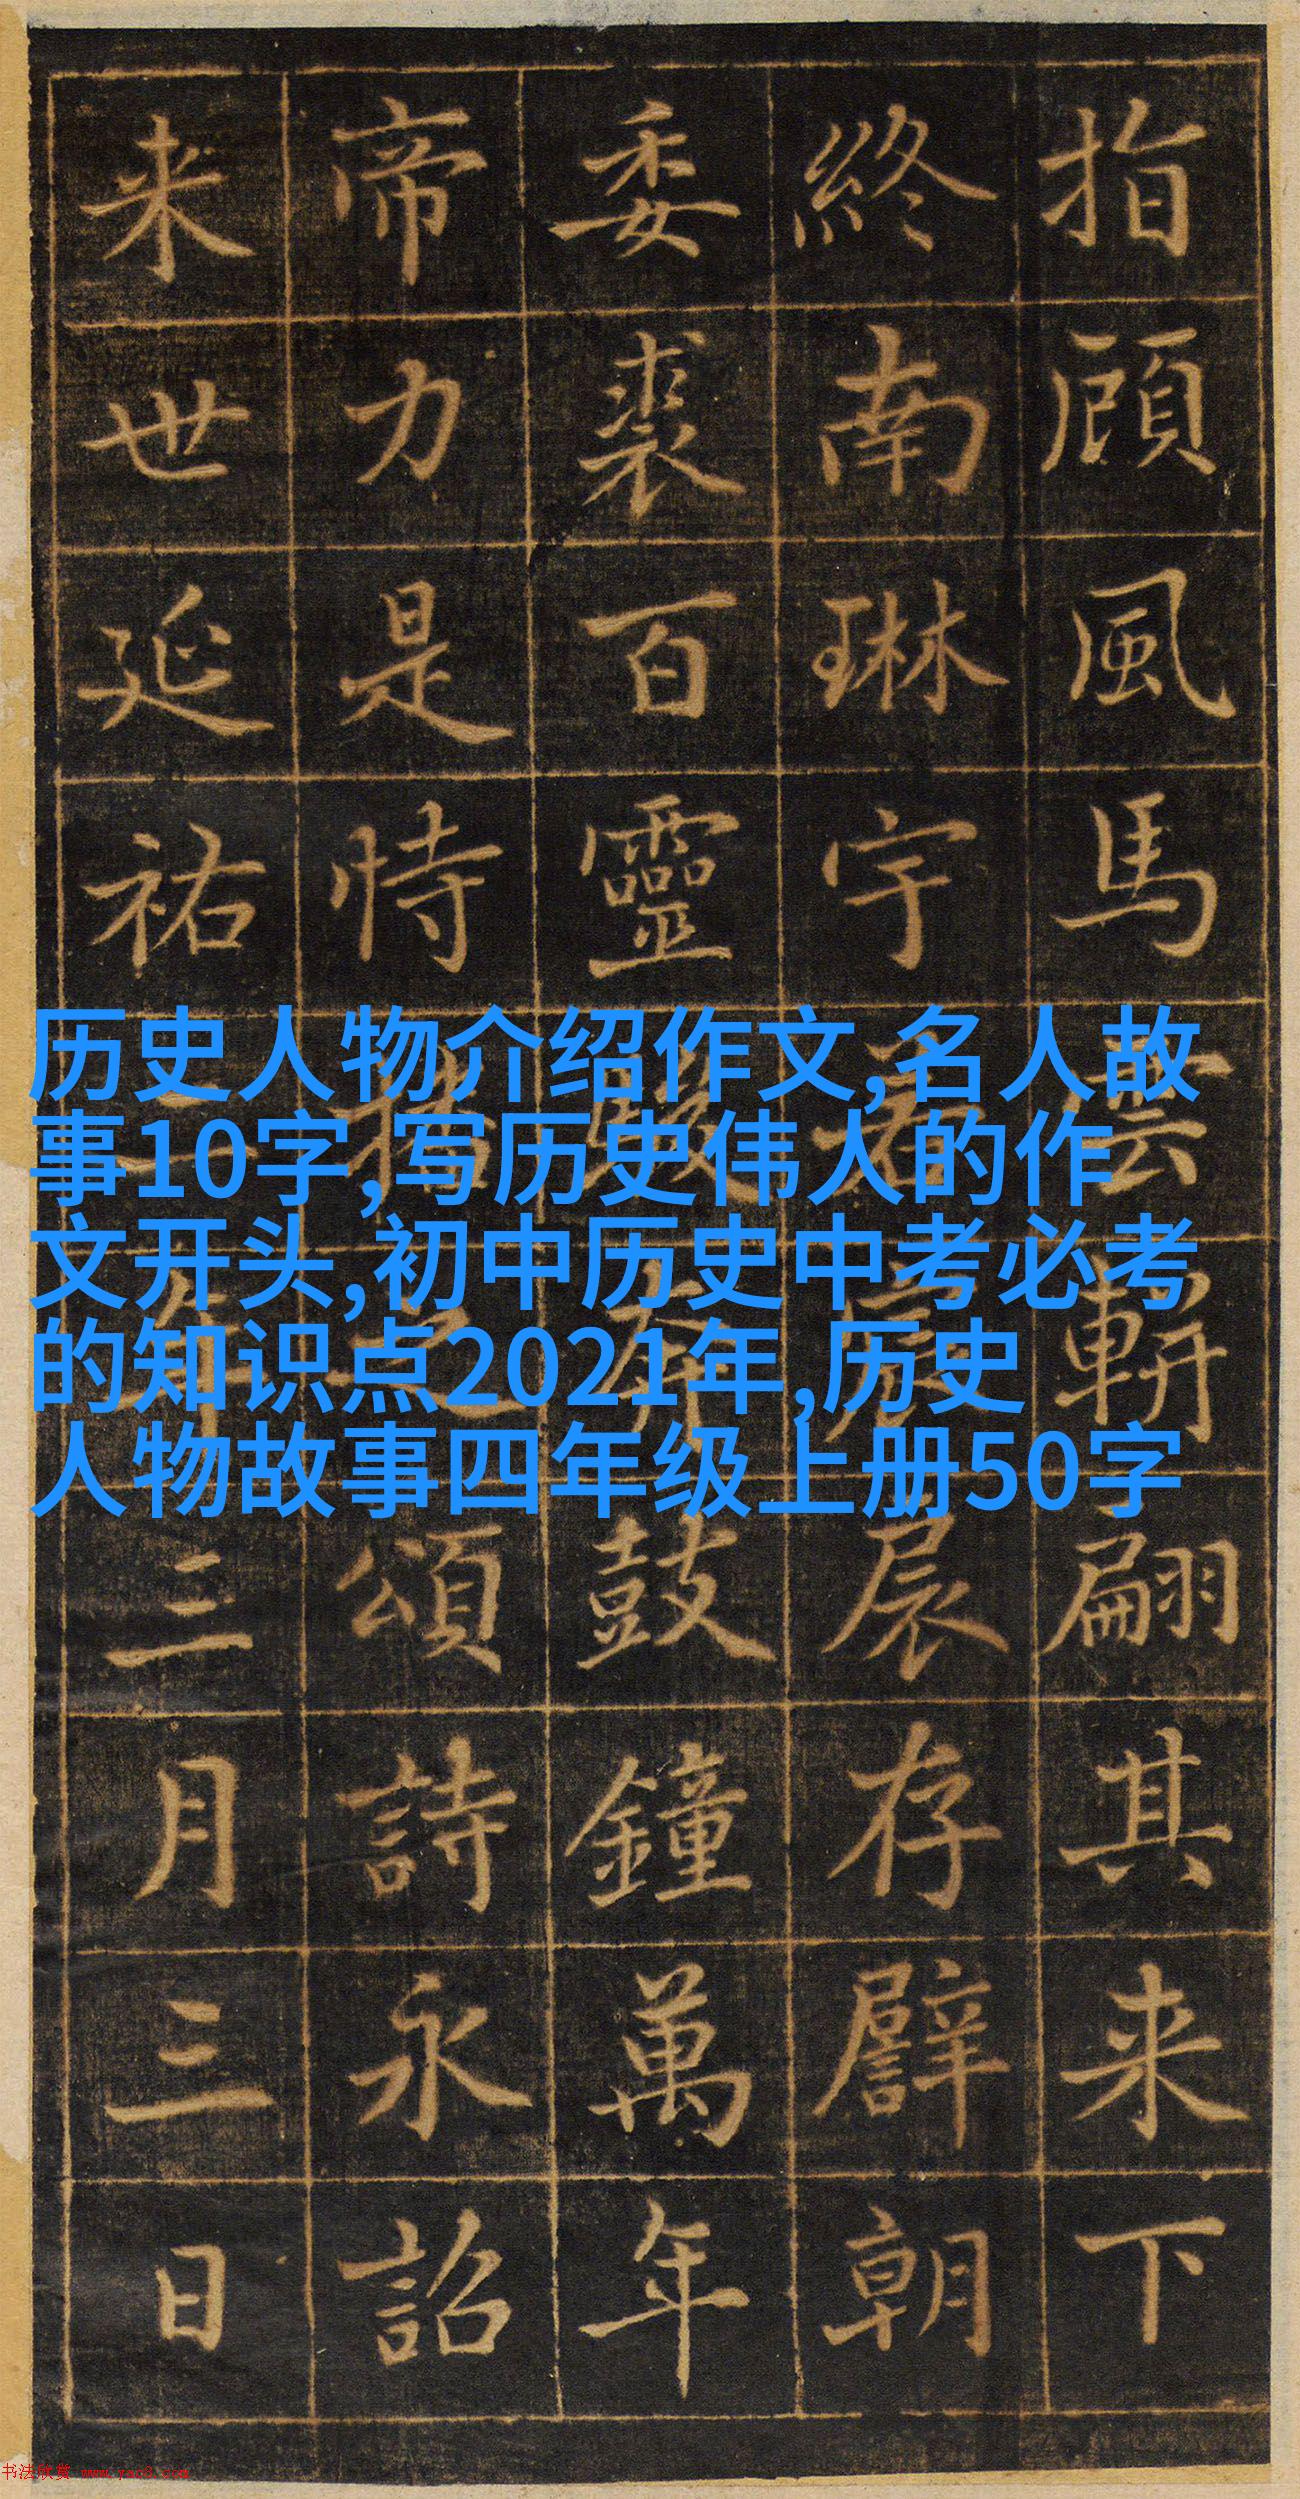 指顧風馬雲軿翩其来下
終南琳宇若宸存朝
委裘百靈鼓鐘萬年
帝力是恃播之頌詩永詔
来世延祐二年三月三日
历史人物介绍作文,名人故
事10字,写历史伟人的作
文开头,初中历史中考必考
的知识点2021年,历史
人物故事四年级上册50字
书法欣赏 www.yac8.com